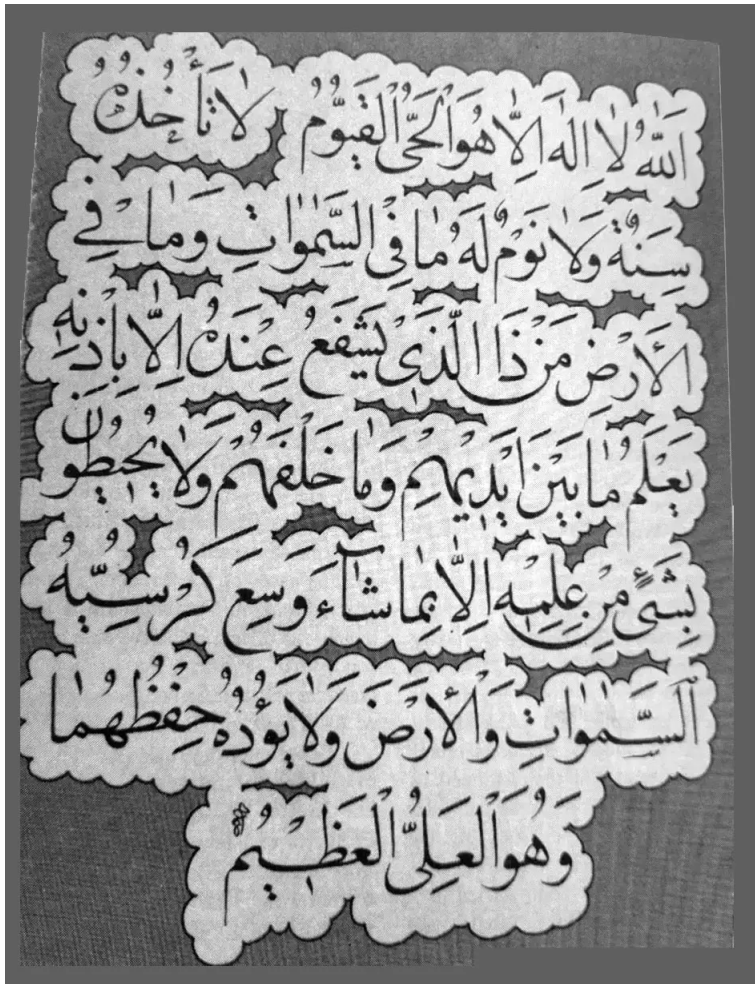 اَللّٰهُ لَٓا اِلٰهَ اِلَّا هُوَ الْحَىُّ الْقَيُّومُ لَا تَأْخُذُهُ
سِنَةٌ وَلَا نَوْمٌ لَهُ مَا فِى السَّمٰوَاتِ وَمَا فِى
الْاَرْضِ مَنْ ذَا الَّذٖى يَشْفَعُ عِنْدَهُ اِلَّا بِاِذْنِهٖ
يَعْلَمُ مَا بَيْنَ اَيْدٖيهِمْ وَمَا خَلْفَهُمْ وَلَا يُحٖيطُونَ
بِشَىْءٍ مِنْ عِلْمِهٖ اِلَّا بِمَا شَٓاءَ وَسِعَ كُرْسِيُّهُ
السَّمٰوَاتِ وَالْاَرْضَ وَلَا يَؤُدُهُ حِفْظُهُمَا
وَهُوَ الْعَلِىُّ الْعَظٖيمُ